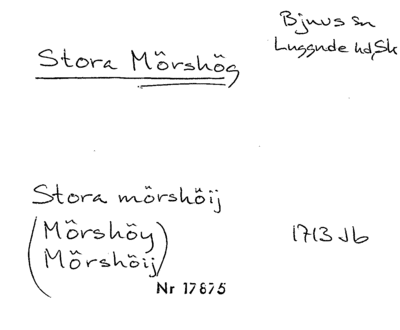 Stora Mörshög
Bjuvs sn
Luggude hd, Sk
Stora mörshöij
(Mörshöy)
(Mörshöij)
1713 Jb
Nr 17875